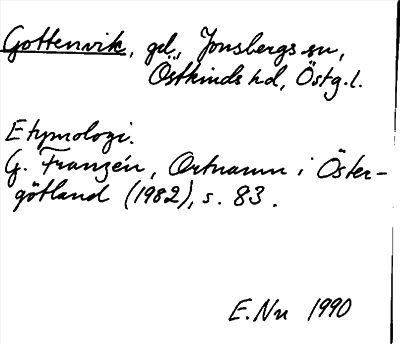 Gottenvik, gd, Jonsbergs sn,
Östkinds hd, Östg.l.
Etymologi.
G. Franzén, Ortnamn i Öster-
götland (1982), s. 83.
E. Nn 1990